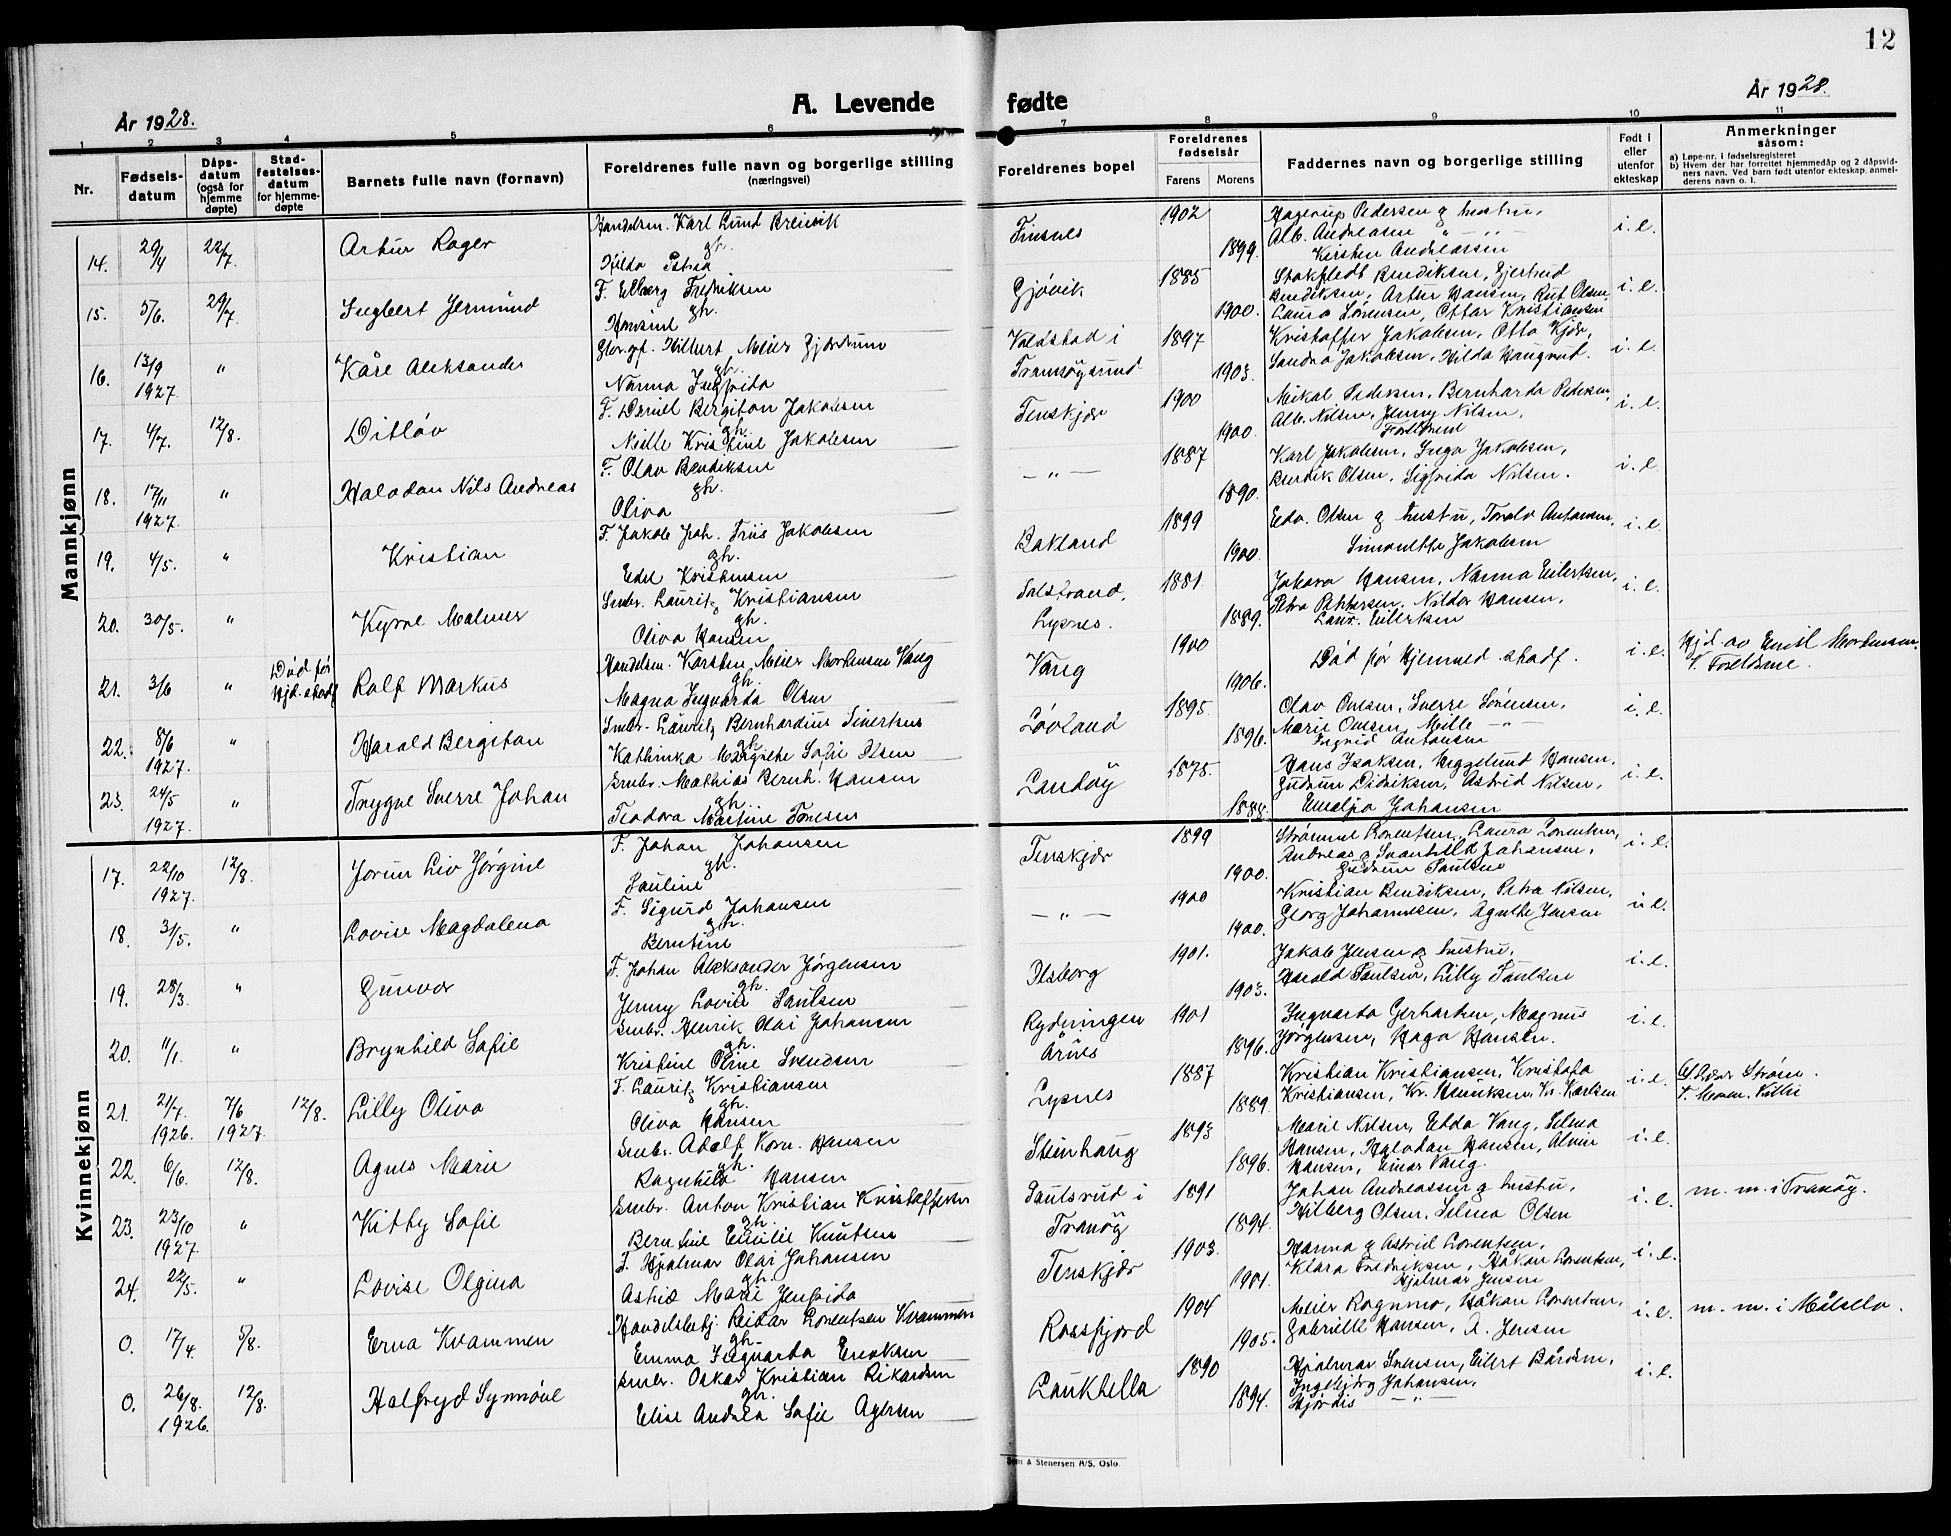 12
År 1928.
A. Levende fødte
År 1928.
1 2 3 4 5 6 7 8 9 10 11
Nr.
Fødsels-datum
Dåps-datum (også for hjemme døpte)
Stad-festelses-datum for hjemme-døpte
Barnets fulle navn (fornavn)
Foreldrenes fulle navn og borgerlige stilling
(næringsvei)
Foreldrenes bopel
Foreldrenes fødselsår
Farens Morens
Faddernes navn og borgerlige stilling
Født i eller utenfor ekteskap
Anmerkninger
såsom:
a) Løpe-nr. i fødselsregisteret
b) Hvem der har forrettet hjemmedåp og 2 dåpsvid-
ners navn. Ved barn født utenfor ekteskap. anmel-
derens navn o. l.
Mannkjønn
14. 29/4 22/7. Artur Roger
Handelsm. Karl Lund Breivik
gh.
Hilda Petrea
Finsnes 1902 1899.
Hagerup Pedersen g hustru,
Alb. Andreasen " - " -
Kirsten Andreassen
i. e.
15. 5/6. 29/7 Ingbert Jermund
F. Elberg Fredriksen
gh.
Hansine
Gjøvik 1885 1900.
Stokfledt Bendiksen, Gjertrud
Bendiksen, Artur Hansen, Rut Olsen,
Laura Sørensen, Ottar Kristiansen
i. e.
16. 13/9 1927. " Kåre Aleksander
Hilbert Meier Gjerdrum
gh.
Nanna Ingfrida
Valdstad i
Tranøysund
1897 1903.
Kristoffer Jakobsen, Otto Kjær,
Sandra Jakobsen, Hilda Haugrud.
i. e.
17. 4/7. 12/8. Ditløv
F. Daniel Bergiton Jakobsen
gh.
Mille Kristine Jakobsen
Tenskjær 1900 1900.
Mikal Pedersen, Bernharda Pedersen,
Alb. Nilsen, Jenny Nilsen,
Foreldrene
i. e.
18. 17/11 1927. " Halvdan Nils Andreas
F. Olav Bendiksen
gh.
Oliva
- " - 1887 1890.
Karl Jakobsen, Inga Jakobsen,
Bendik Olsen, Sigfrida Nilsen.
i. e.
19. 4/5. " Kristian
F. Jakob Joh. Friis Jakobsen
gh.
Edel Kristensen
Bakland 1899 1900.
Edv. Olsen g hustru, Torolv Antonsen,
Simonette Jakobsen
i. e.
20. 30/5. " Kyrre Malmer
Småbr. Lauritz Kristiansen
gh.
Oliva Hansen
Salstrand,
Lysnes.
1881. 1889.
Johara Hansen, Nanna Eilertsen,
Petra Pettersen, Nildor Hansen,
Laur. Eilertsen
i. e.
21. 3/6 " Død før
Hjd. stadf. Rolf Markus
Handelsm. Karsten Meier Mortensen Vang
gh.
Magna Ingvarda Olsen
Vang 1900 1906.
Død før Hjemmed. stadf.
i. e.
Hjd. av Emil Mortensen.
V. Foreldrene.
22. 8/6 1927. " Harald Bergiton
Småbr. Lauritz Bernhardius Sivertsen
gh.
Kathinka Margrethe Sofie Olsen
Løvland 1895 1896.
Olav Onesen, Sverre Sørensen,
Marie Onesen, Mille - " -
Ingvid Antonsen
i. e.
23. 24/5 1927. " Trygve Sverre Johan
Småbr. Mathias Bernh. Hansen
gh.
Teodora Martine Tønesen
Landøy 1878. 1888.
Hans Isaksen, Heggelund Hansen,
Gudrun Didriksen, Astrid Nilsen,
Emelja Johansen
i. e.
Kvinnekjønn
17. 22/10 1927. 12/8. Jorun Liv Jørgine
F. Johan Johansen
gh.
Pauline
Tenskjær 1899 1900.
Strømme Lorentsen, Laura Lorentsen,
Andreas g Svanhild Johansen,
Gudrun Paulsen
i. e.
18. 31/5. " Lovise Magdalena
F. Sigurd Johansen
gh.
Berntine
- " - 1900 1900.
Kristian Bendiksen, Petra Nilsen,
Georg Johannesen, Agnethe Jensen
i. e.
19. 28/3. " Gunvor
F. Johan Aleksander Jørgensen
gh.
Jenny Lovise Paulsen
Olsborg 1901. 1903.
Jakob Jensen g hustru,
Harald Paulsen, Lilly Paulsen
i. e.
20. 11/1. " Brynhild Sofie
Småbr. Henrik Olai Johansen
gh.
Kristine Oline Svendsen
Rydningen
Årnes
1901 1896.
Ingvarda Gerhartsen, Magnus
Jørgensen, Haga Hansen.
i. e.
21. 21/7. 1926. 7/6 1927. 12/8. Lilly Oliva
F. Lauritz Kristiansen
gh.
Oliva Hansen
Lysnes 1887 1889.
Kristian Kristiansen, Kristofa
Kristiansen, Kr. Henriksen, Kr. Karlsen
i. e.
22. 6/6. 12/8. Agnes Marie
Småbr. Adolf Korn. Hansen
gh.
Ragnhild Hansen
Steinhaug 1893 1896.
Marie Nilsen, Edda Vang, Selma
Hansen, Halvdan Hansen, Alvin
Hansen, Einar Vang.
i. e.
23. 23/10 1927. " Kitty Sofie
Småbr. Anton Kristian Kristoffersen
gh.
Berntine Emilie Knutsen
Paulsrud i
Tranøy
1891 1894.
Johan Andreassen g hustru,
Hilberg Olsen, Selma Olsen
i. e.
m. m. i Tranøy.
24. 22/5. " Lovise Olgina
F. Hjalmar Olai Johansen
gh.
Astrid Marie Jenfrida
Tenskjær 1903. 1901.
Hanna g Astrid Lorentsen,
Klara Fredriksen, Håkon Lorentsen,
Hjalmar Jensen
i. e.
0. 17/4. 5/8. Erna Kvammen
Handelsbetj. Reidar Lorentsen Kvammen
gh.
Emma Ingvarda Enoksen
Rossfjord 1904 1905.
Meier Rognmo, Håkon Lorentsen,
Gabrielle Hansen, A. Jensen
i. e.
m. m. i Målselv.
0. 26/8. 1926. 12/8. Halfryd Synnøve
Småbr. Oskar Kristian Rikardsen
gh.
Elise Andrea Sofie Agersen
Laukhella 1890 1894.
Hjalmar Svensen, Eilert Bårdsen,
Ingebjørg Johansen,
Hjørdis - " -
i. e.
& Stenersen A/S, Oslo.